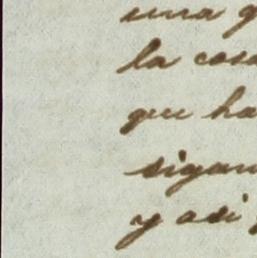 una q
la cosa
que ha
sigan
y asi